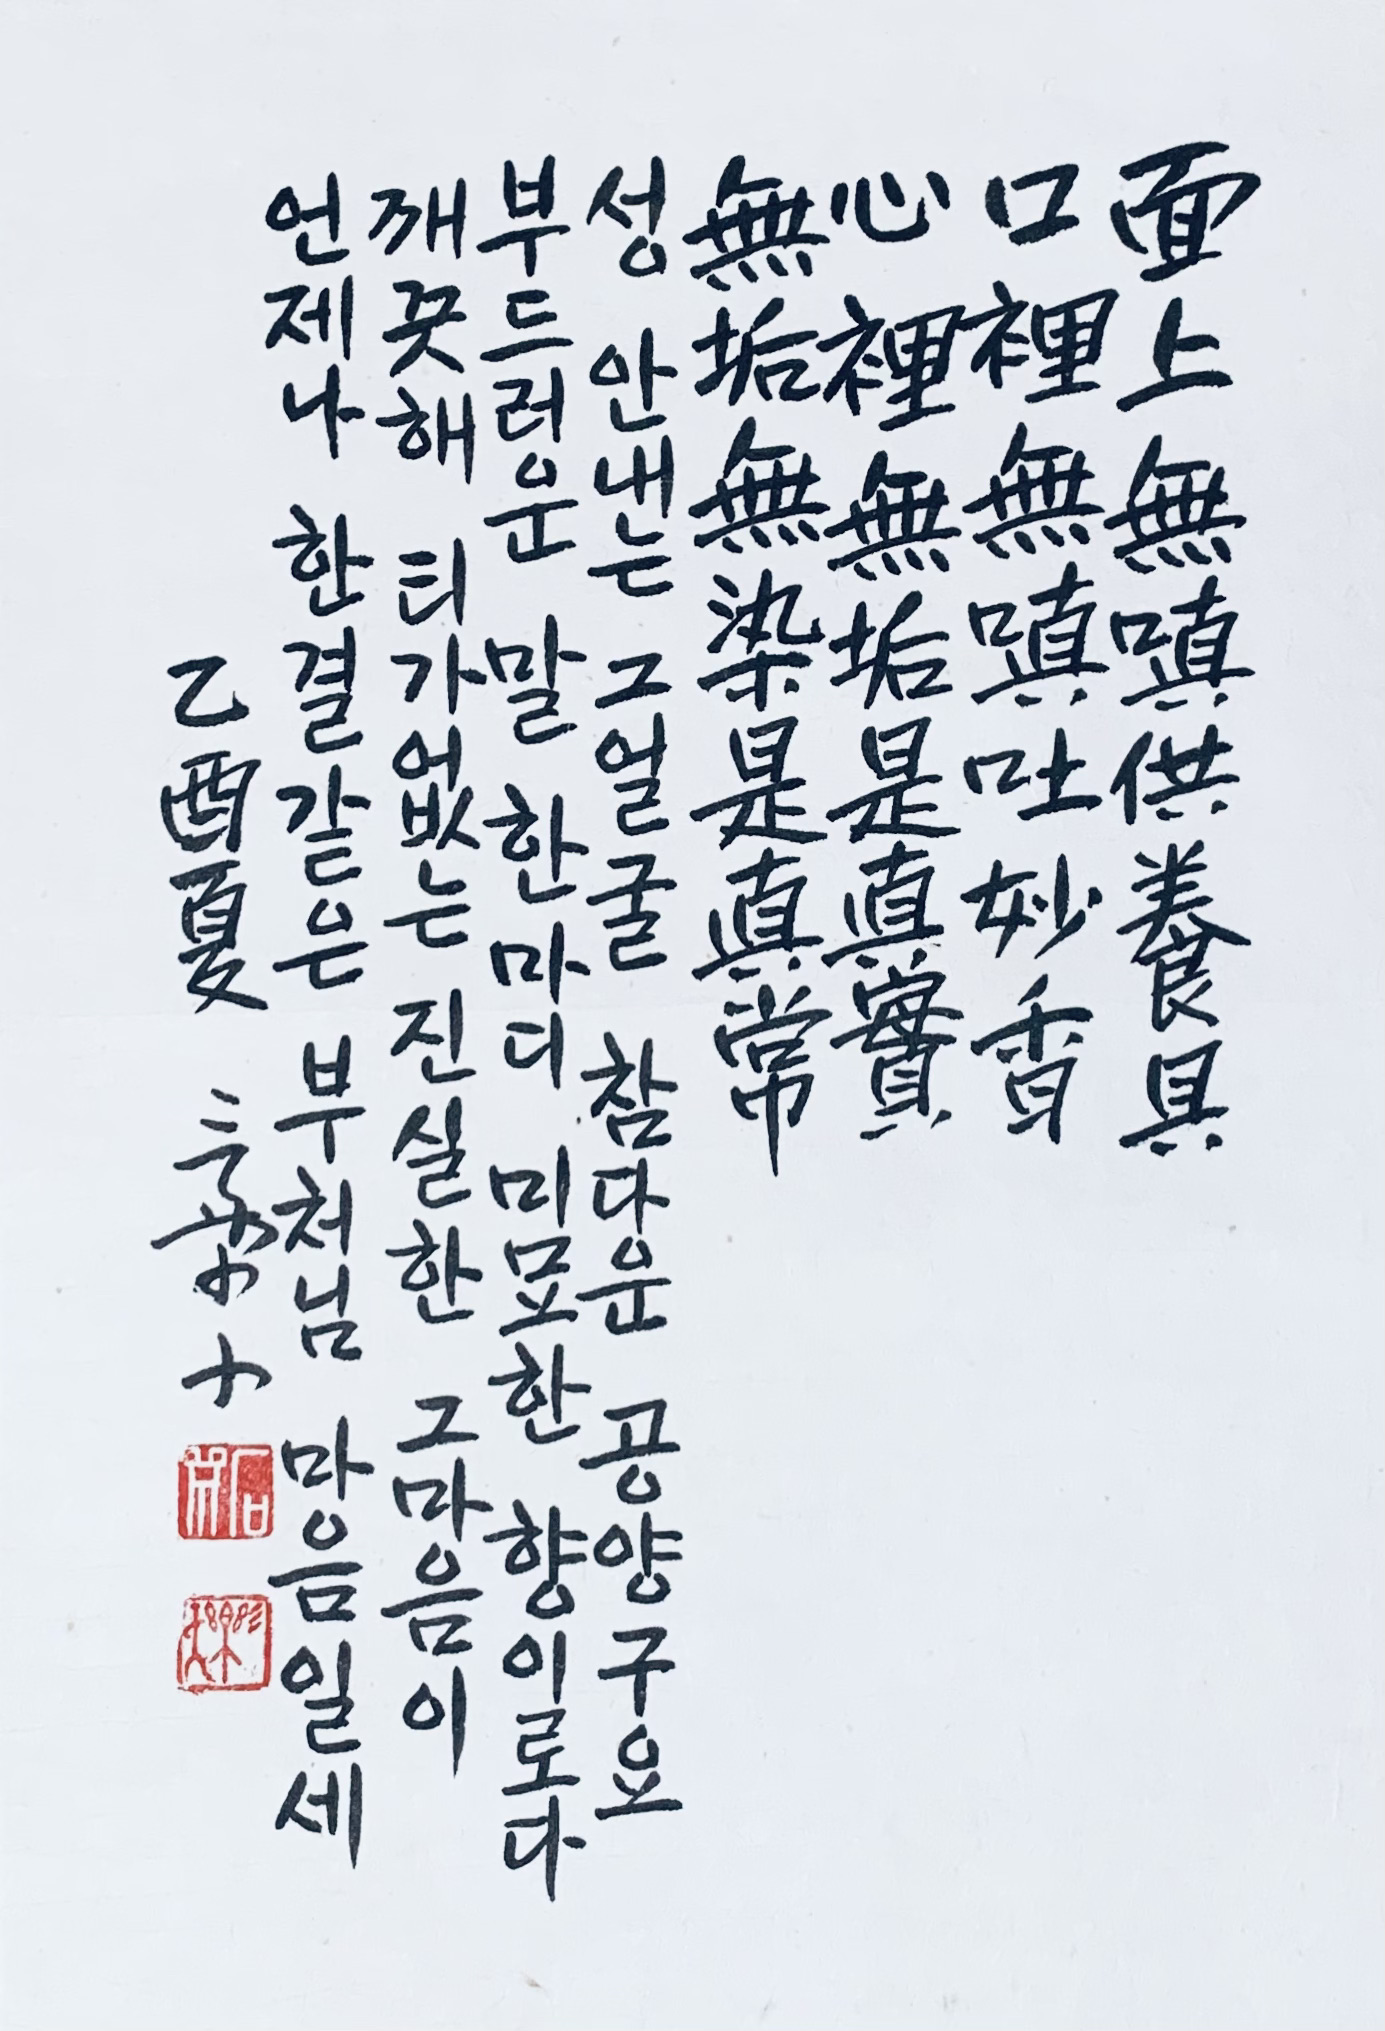 面上無嗔供養具
口裡無嗔吐妙香
心裡無垢是真實
無垢無染是真常
성 안내는 그얼굴 참다운 공양구요
부드러운 말 한마디 미묘한 향이로다
깨끗해 티가없는 진실한 그마음이
언제나 한결같은 부처님 마음일세
乙酉夏